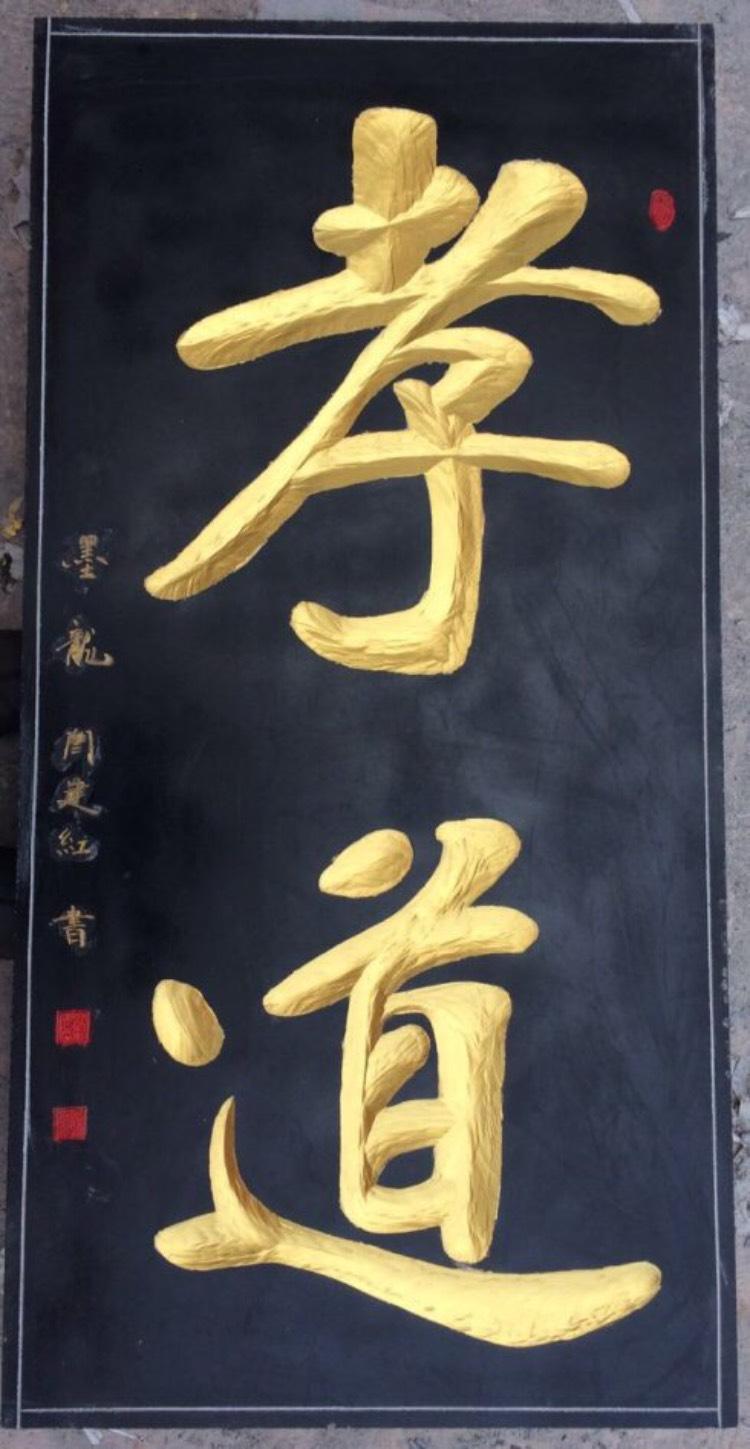 孝道
墨龍 閆建紅 書